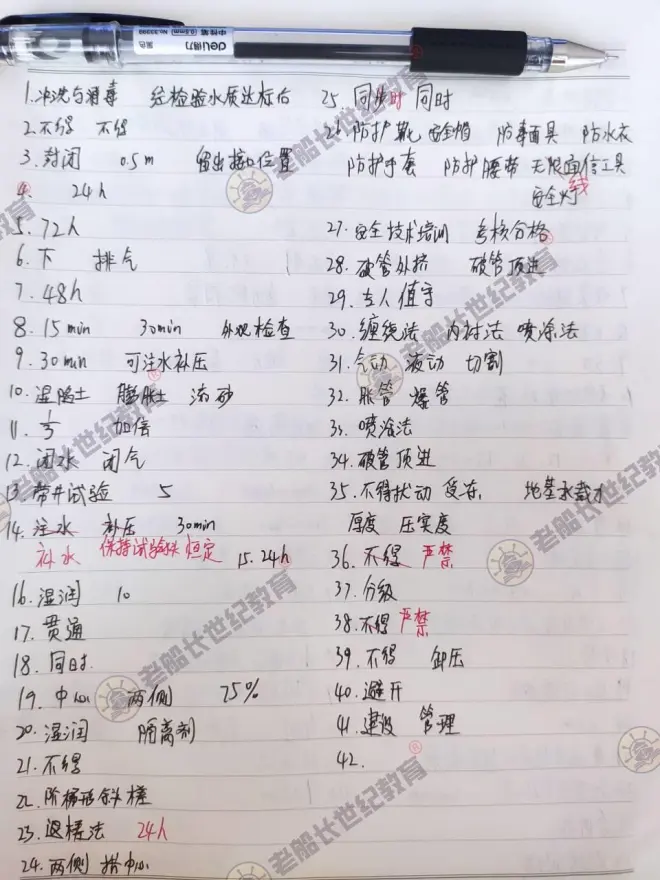 deli得力
No.33388
0.5mm
中性笔
黑色
1.冲洗与消毒 经检验水质达标后
2.不得 不得
3.封闭 0.5m 留出接口位置
4. 24h
5. 72h
6. 下 排气
7. 48h
8. 15min 30min 外观检查
9. 30min 可注水补压
10. 湿陷土 膨胀土 流砂
11. 1/3 加倍
12. 闭水 闭气
13 带井试验 5
14. 注水 补压 30min
补水 保持试验水头恒定 15. 24h
16. 湿润 10
17. 贯通
18. 同时.
19. 中心 两侧 75%
20. 湿润 隔离剂
21. 不得
22. 阶梯形斜槎
23. 退槎法 24h
24. 两侧 拱中心
25 同步时 同时
26 防护靴 安全帽 防毒面具 防水衣
防护手套 防护腰带 无限通信工具
安全灯 线
27. 安全技术培训 考核合格
28. 破管外挤 破管顶进
29. 专人值守
30. 缠绕法 内衬法 喷涂法
31. 气动 液动 切割
32. 胀管 爆管
33. 喷涂法
34. 破管顶进
35. 不得扰动 受冻 地基承载力
厚度 压实度
36. 不得 严禁
37. 分级
38. 不得 严禁
39. 不得 卸压
40. 避开
41. 建设 管理
42.
老船长世纪教育
老船长世纪教育
老船长世纪教育
老船长世纪教育
老船长世纪教育
老船长世纪教育